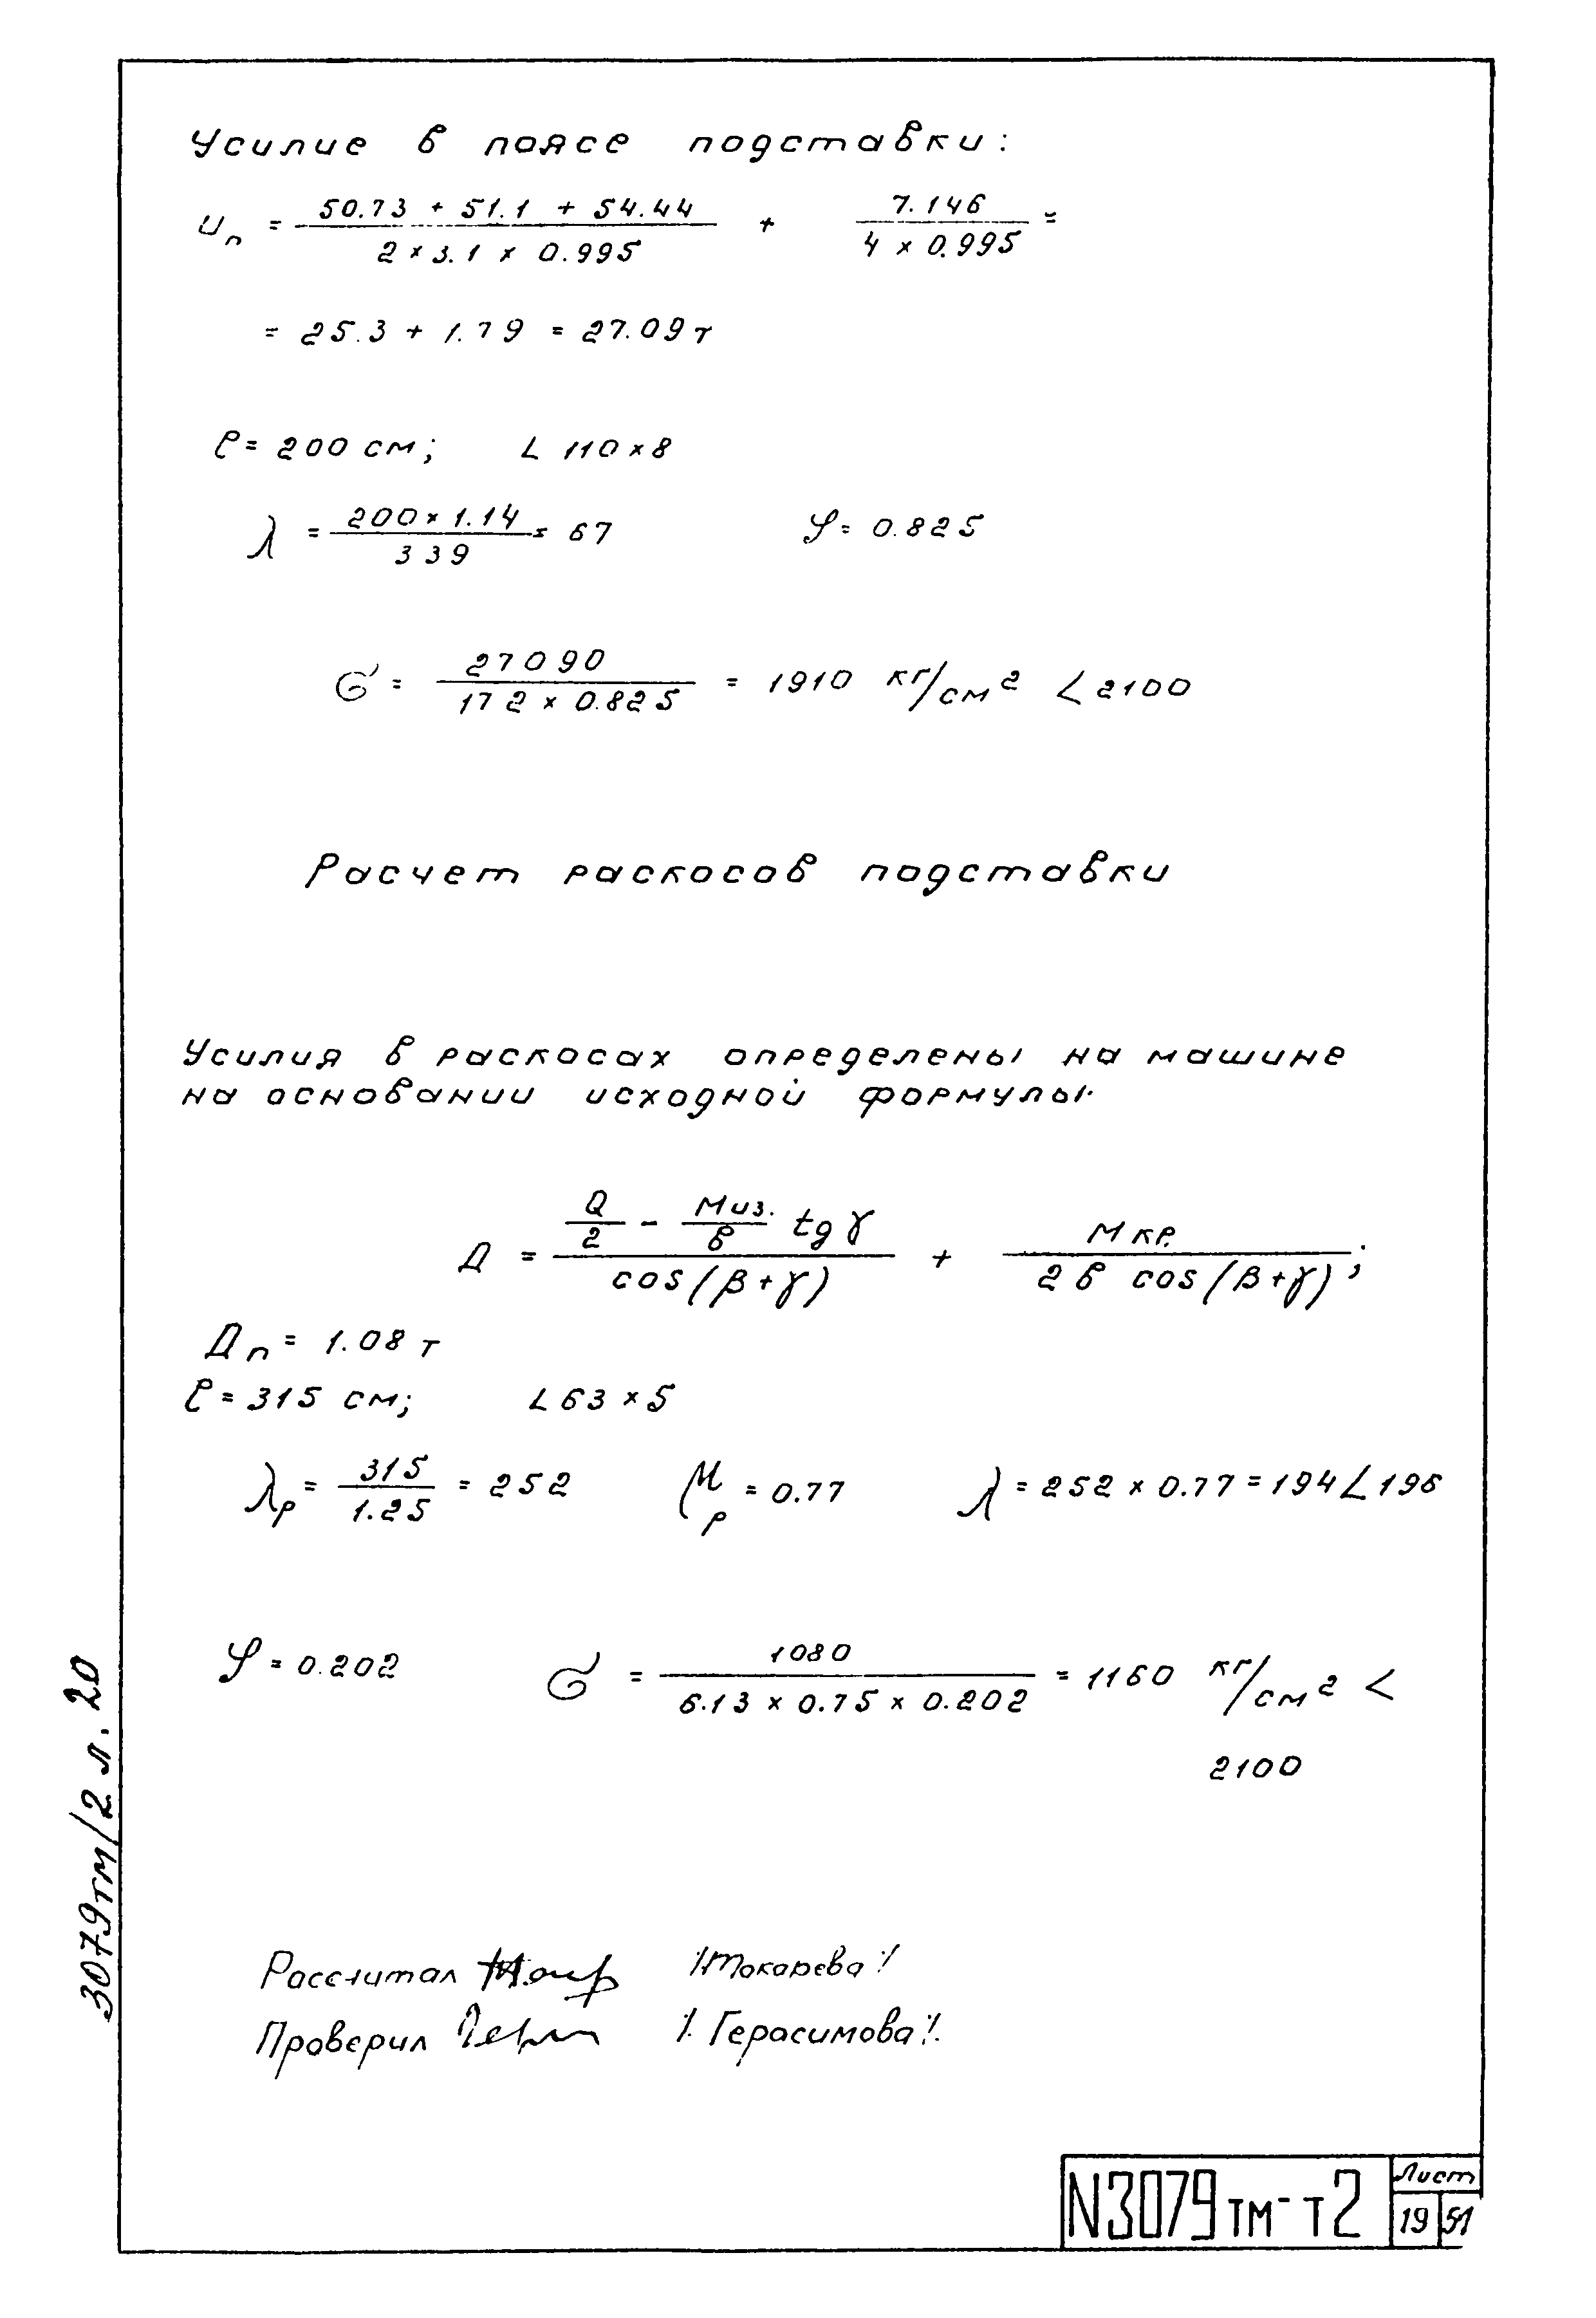 Усилие в поясе подставки:
Uп = (50.73 + 51.1 + 54.44)/(2 × 3.1 × 0.995) + 7.146/(4 × 0.995) =
= 25.3 + 1.79 = 27.09 т
ℓ = 200 см; L 110×8
λ = (200 × 1.14)/339 = 67 φ = 0.825
σ = 27090/(172 × 0.825) = 1910 кг/см2 < 2100
Расчет раскосов подставки
Усилия в раскосах определены на машине
на основании исходной формулы:
Д = (Q/2 - Миз./в tg γ)/cos(β+γ) + Мкр./(2в cos(β+γ));
Дп = 1.08 т
ℓ = 315 см; L 63 × 5
λр = 315/1.25 = 252 μр = 0.77 λ = 252 × 0.77 = 194 < 196
φ = 0.202 σ = 1080/(6.13 × 0.75 × 0.202) = 1160 кг/см2 <
2100
Рассчитал /Токарева/
Проверил /Герасимова/
3079тм/2 л. 20
N3079тм-т2
Лист
19 51